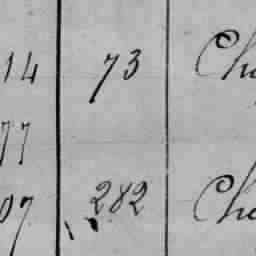 14 73 Ch
77
07 282 Ch